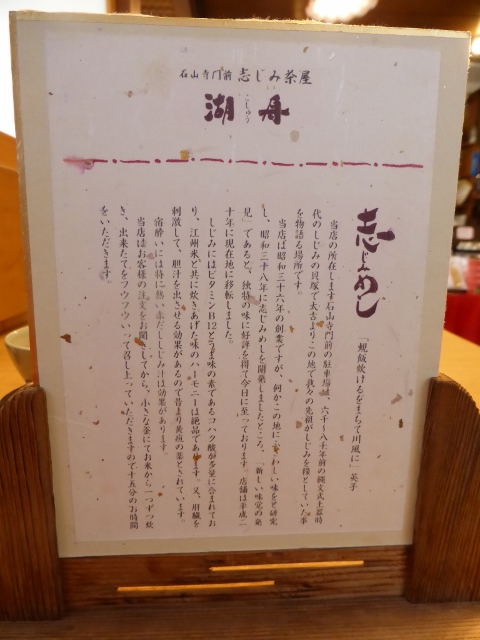 石山寺門前 志じみ茶屋
湖舟
こしゅう
志じみめし
「蜆飯炊けるをまちて川風に」英子
当店の所在します石山寺門前の駐車場は、六千～八千年前の縄文式土器時
代のしじみの貝塚で太古よりこの地で我々の先祖がしじみを糧としていた事
を物語る場所です。
当店は昭和三十六年の創業ですが、何かこの地にふさわしい味をと研究
し、昭和三十八年に志じみめしを開発しましたところ、「新しい味覚の発
見」であると、独特の味に好評を得て今日に至っております。店舗は平成二
十年に現在地に移転しました。
しじみにはビタミンB12とうま味の素であるコハク酸が多量に含まれてお
り、江州米と共に炊きあげた味のハーモニーは絶品であります。又、肝臓を
刺激して、胆汁を出させる効果があるので昔より黄疸の薬とされています。
宿酔いには特に熱い赤だししじみ汁は効果があります。
当店はお客様の注文をお聞きしてから、小さな釜にてお米から一つずつ炊
き、出来たてをフウフウいって召し上っていただきますので十五分のお時間
をいただきます。